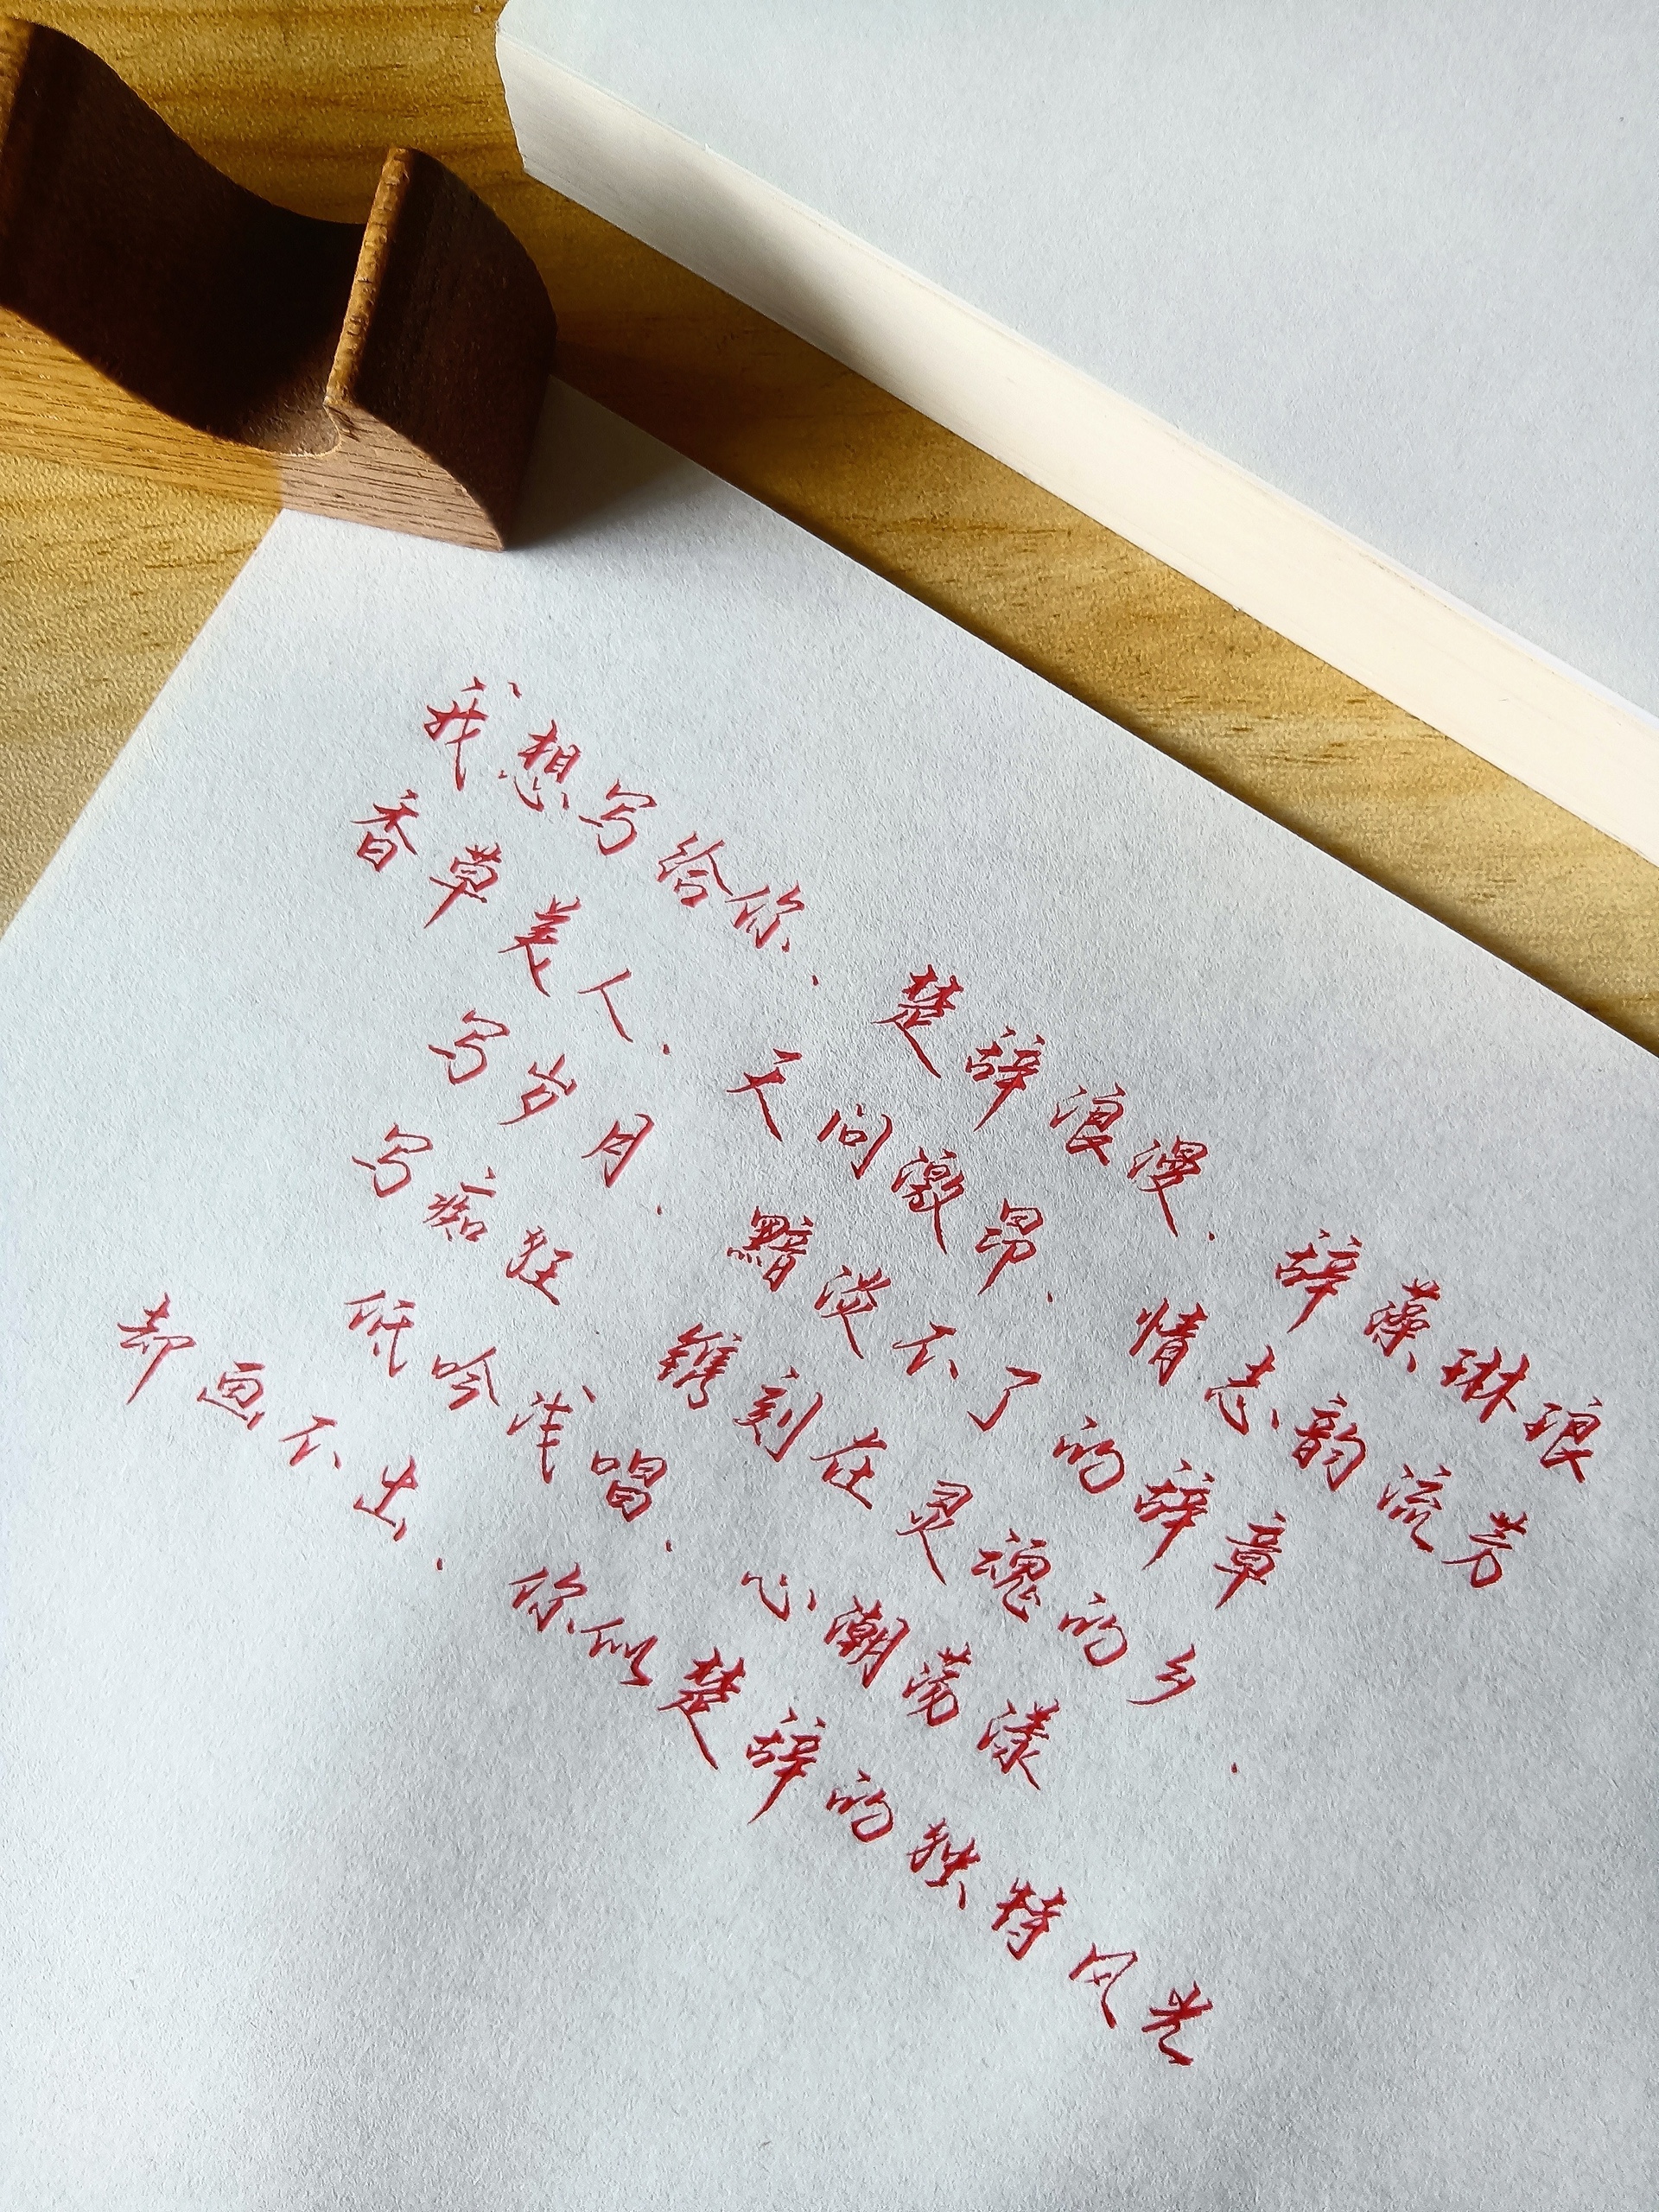 我想写给你、楚辞浪漫.辞藻琳琅
香草美人.天问激昂.情志韵流芳
写岁月.黯淡不了的辞章
写痴狂 镌刻在灵魂的乡.
低吟浅唱.心潮荡漾
却画不出.你似楚辞的独特风光